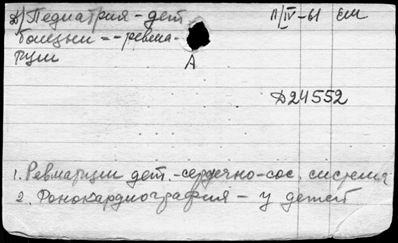 д) Педиатрия - дет
болезни -- ревма-
тизм
А
11/IV-61 ЕМ
Д24552
1. Ревматизм дет. -сердечно-сос. система
2. Фонокардиография - у детей